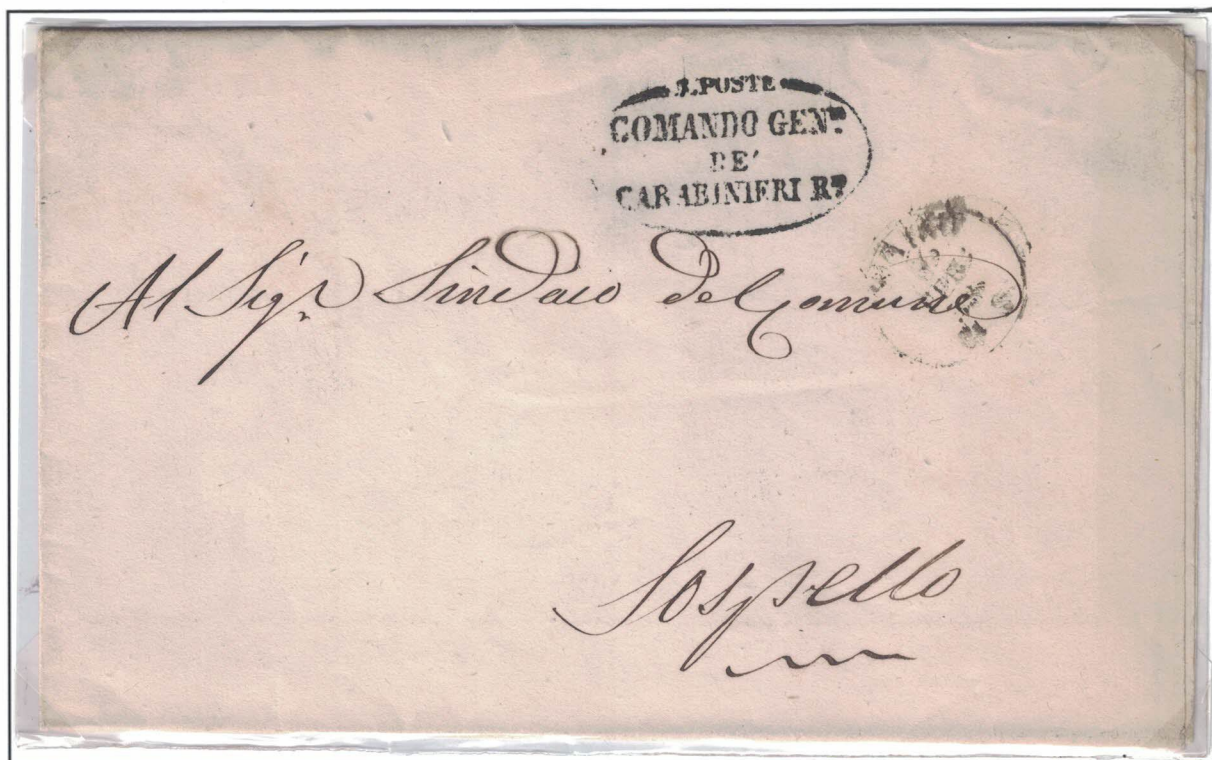 R. POSTE
COMANDO GEN.LE
DE'
CARABINIERI R.I
Al Sig.r Sindaco del Comune
Sospello